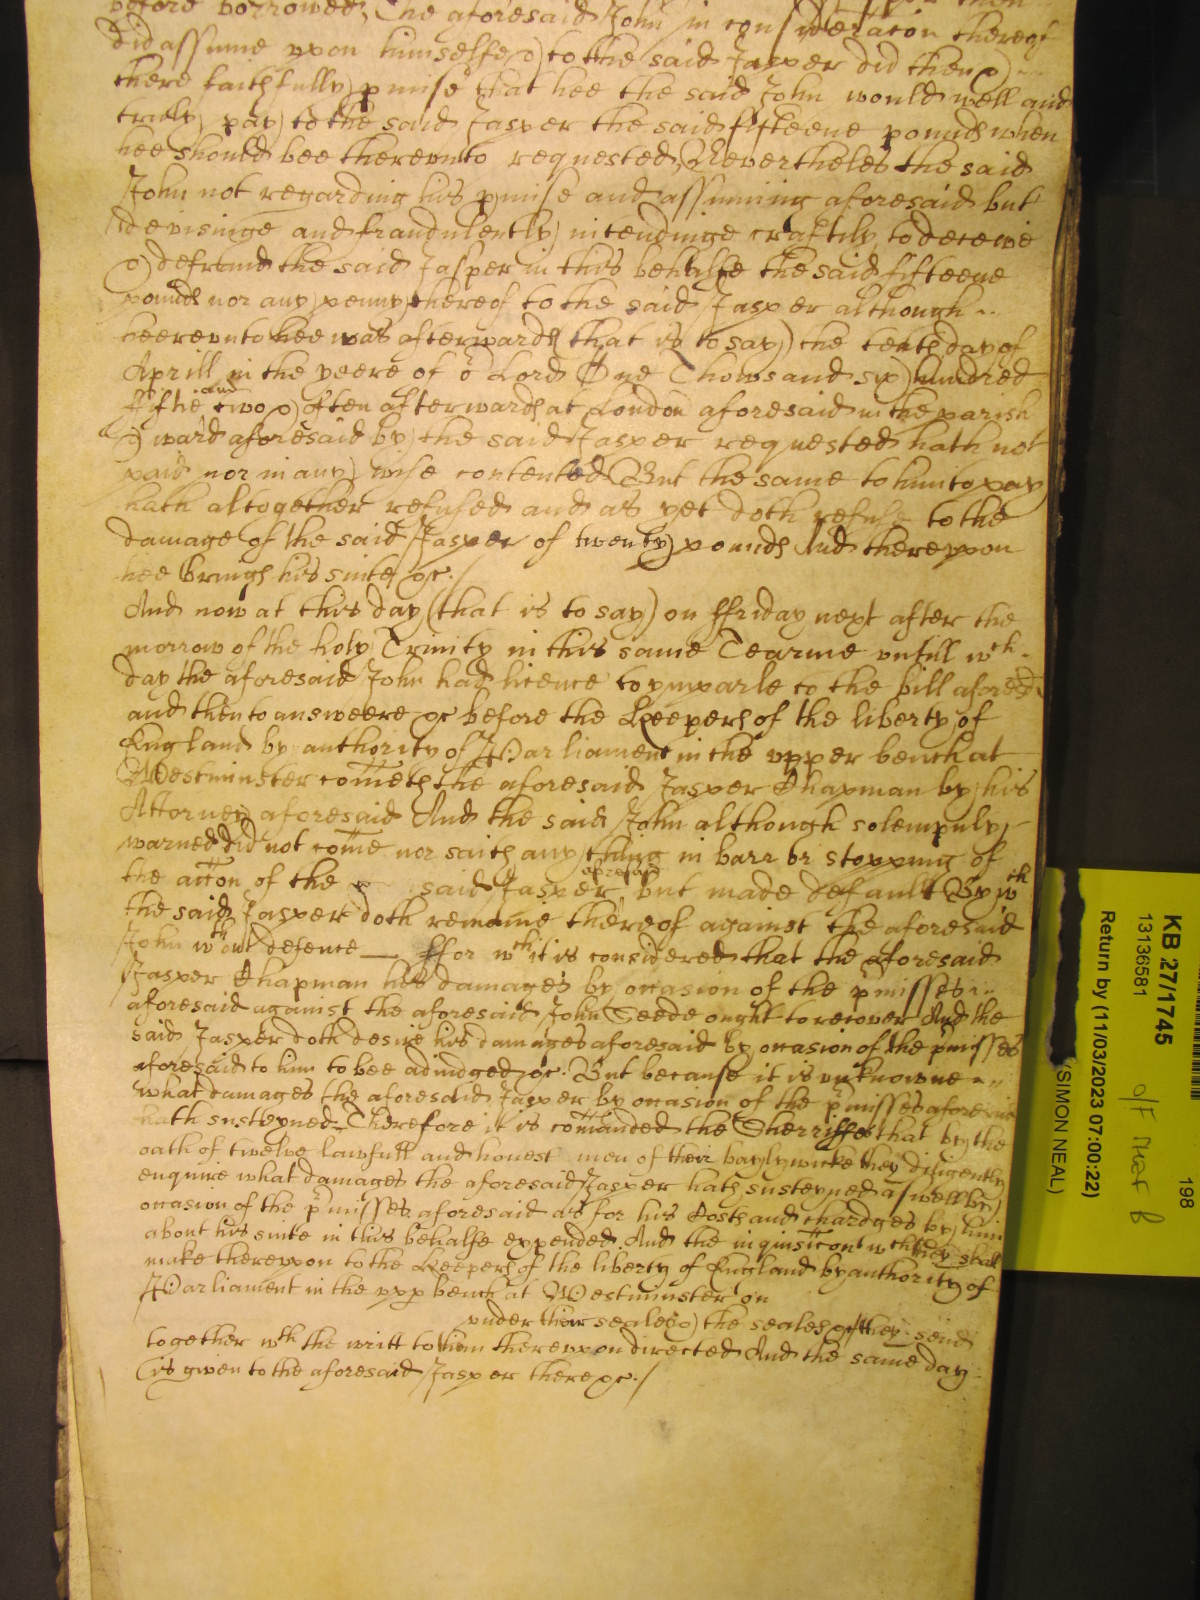 before borrowed, The aforesaid John in consideracon thereof
did assume vpon himselfe & to the said Jasper did then &
there faithfully p'mise that hee the said John would well and
truely pay to the said Jasper the said fifteene pounds when
hee should bee therevnto requested, Neverthelesse the said
John not regarding his p'mise and assuming aforesaid but
devisinge and fraudulently intendinge craftily to deceive
& defraud the said Jasper in this behalfe the said fifteene
pounds nor any penny thereof to the said Jasper although
heerevnto hee was afterwards (that is to say) the tenth day of
Aprill in the yeere of o' Lord One Thowsand six hundred
fiftie and two & often afterwards at London aforesaid in the parish
& ward aforesaid by the said Jasper requested hath not
paid nor in any wise contented But the same to him to pay
hath altogether refused and as yet doth refuse to the
damage of the said Jasper of twenty pounds And therevpon
hee brings his suite &c./
And now at this day (that is to say) on ffriday next after the
morrow of the holy Trinity in this same Tearme vntill wch
day the aforesaid John had licence to ymparle to the bill aforesd
and then to answeere &c before the Keepers of the liberty of
England by authority of Parliament in the vpper bench at
Westminster cometh the aforesaid Jasper Chapman by his
Attorney aforesaid And the said John although solempnly
warned did not come nor saith any thing in barr or stopping of
the accon of the said Jasper aforesaid but made default By wch
the said Jasper doth remaine thereof against the aforesaid
John wthout defence ffor wch it is considered that the aforesaid
Jasper Chapman his damages by occasion of the p'misses
aforesaid against the aforesaid John Seede ought to recover And the
said Jasper doth desire his damages aforesaid by occasion of the p'misses
aforesaid to him to bee adiudged &c. But because it is vnknowne
what damages the aforesaid Jasper by occasion of the p'misses aforesaid
hath susteyned Therefore it is comanded the Sherriffes that by the
oath of twelve lawfull and honest men of their baylywicke they diligently
enquire what damages the aforesaid Jasper hath susteyned aswell by
occasion of the p'misses aforesaid as for his Costs and chardges by him
about his suite in this behalfe expended And the inquisicon wch they shall
make therevpon to the Keepers of the liberty of England by authority of
Parliament in the vpp bench at Westminster on
vnder their seales & the seales &c they send
together wth the writt to them therevpon directed And the same day
is given to the aforesaid Jasper there &c./
KB 27/1745
13136581
Return by (11/03/2023 07:00:22)
(SIMON NEAL)
198